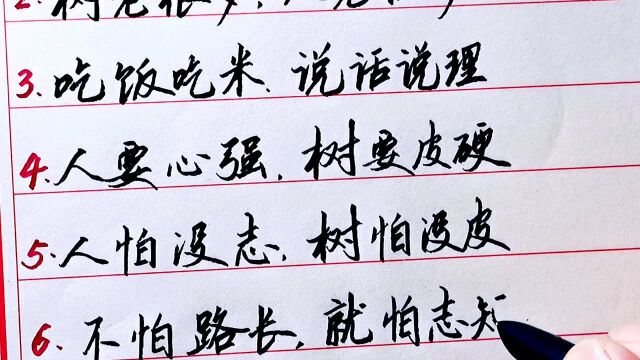 2.树老根多,人老
3.吃饭吃米.说话说理
4.人要心强,树要皮硬
5.人怕没志,树怕没皮
6.不怕路长,就怕志